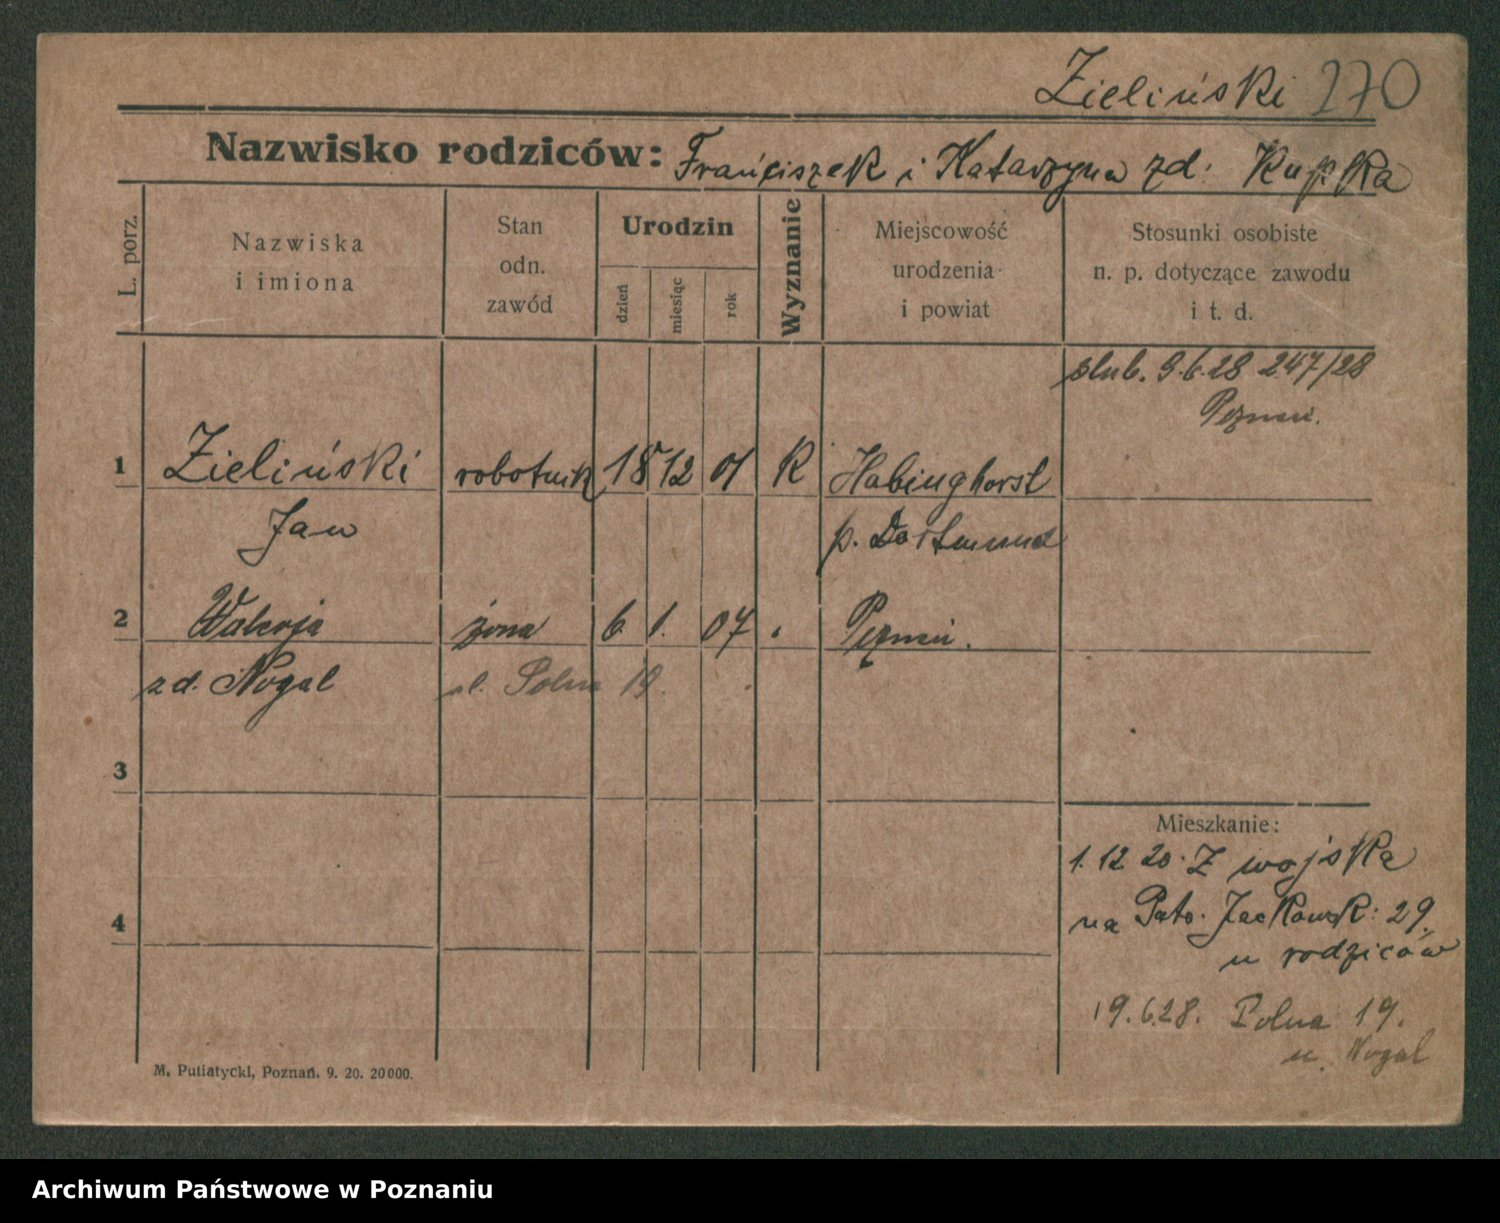 Zieliński 270
Nazwisko rodziców: Franciszek i Katarzyna zd. Kupka
L. porz.
Nazwiska
i imiona
Stan
odn.
zawód
Urodzin
dzień
miesiąc
rok
Wyznanie
Miejscowość
urodzenia
i powiat
Stosunki osobiste
n. p. dotyczące zawodu
i t. d.
ślub. 9.6.28 247/28
Poznań.
1 Zieliński robotnik 18 12 01 K Habinghorst
Jan p. Dortmund
2 Walerja żona 6. 1. 07 " Poznań.
zd. Nogal ul. Polna 19.
3
4
Mieszkanie:
1. 12 20. Z wojska
na Patr. Jackowsk: 29.
u rodziców
19.6.28. Polna 19.
u. Nogal
M. Putiatycki, Poznań. 9. 20. 20000.
Archiwum Państwowe w Poznaniu